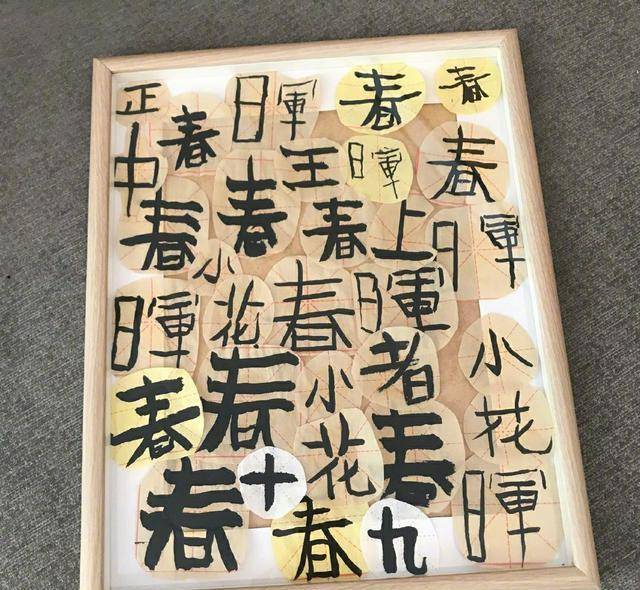 正 春 日軍 春 春
中 王 暉 春
春 春 春 上 暉
小
暉 花 春 暉
小 者 小
春 春 花 春 花
春 十 春 九 暉